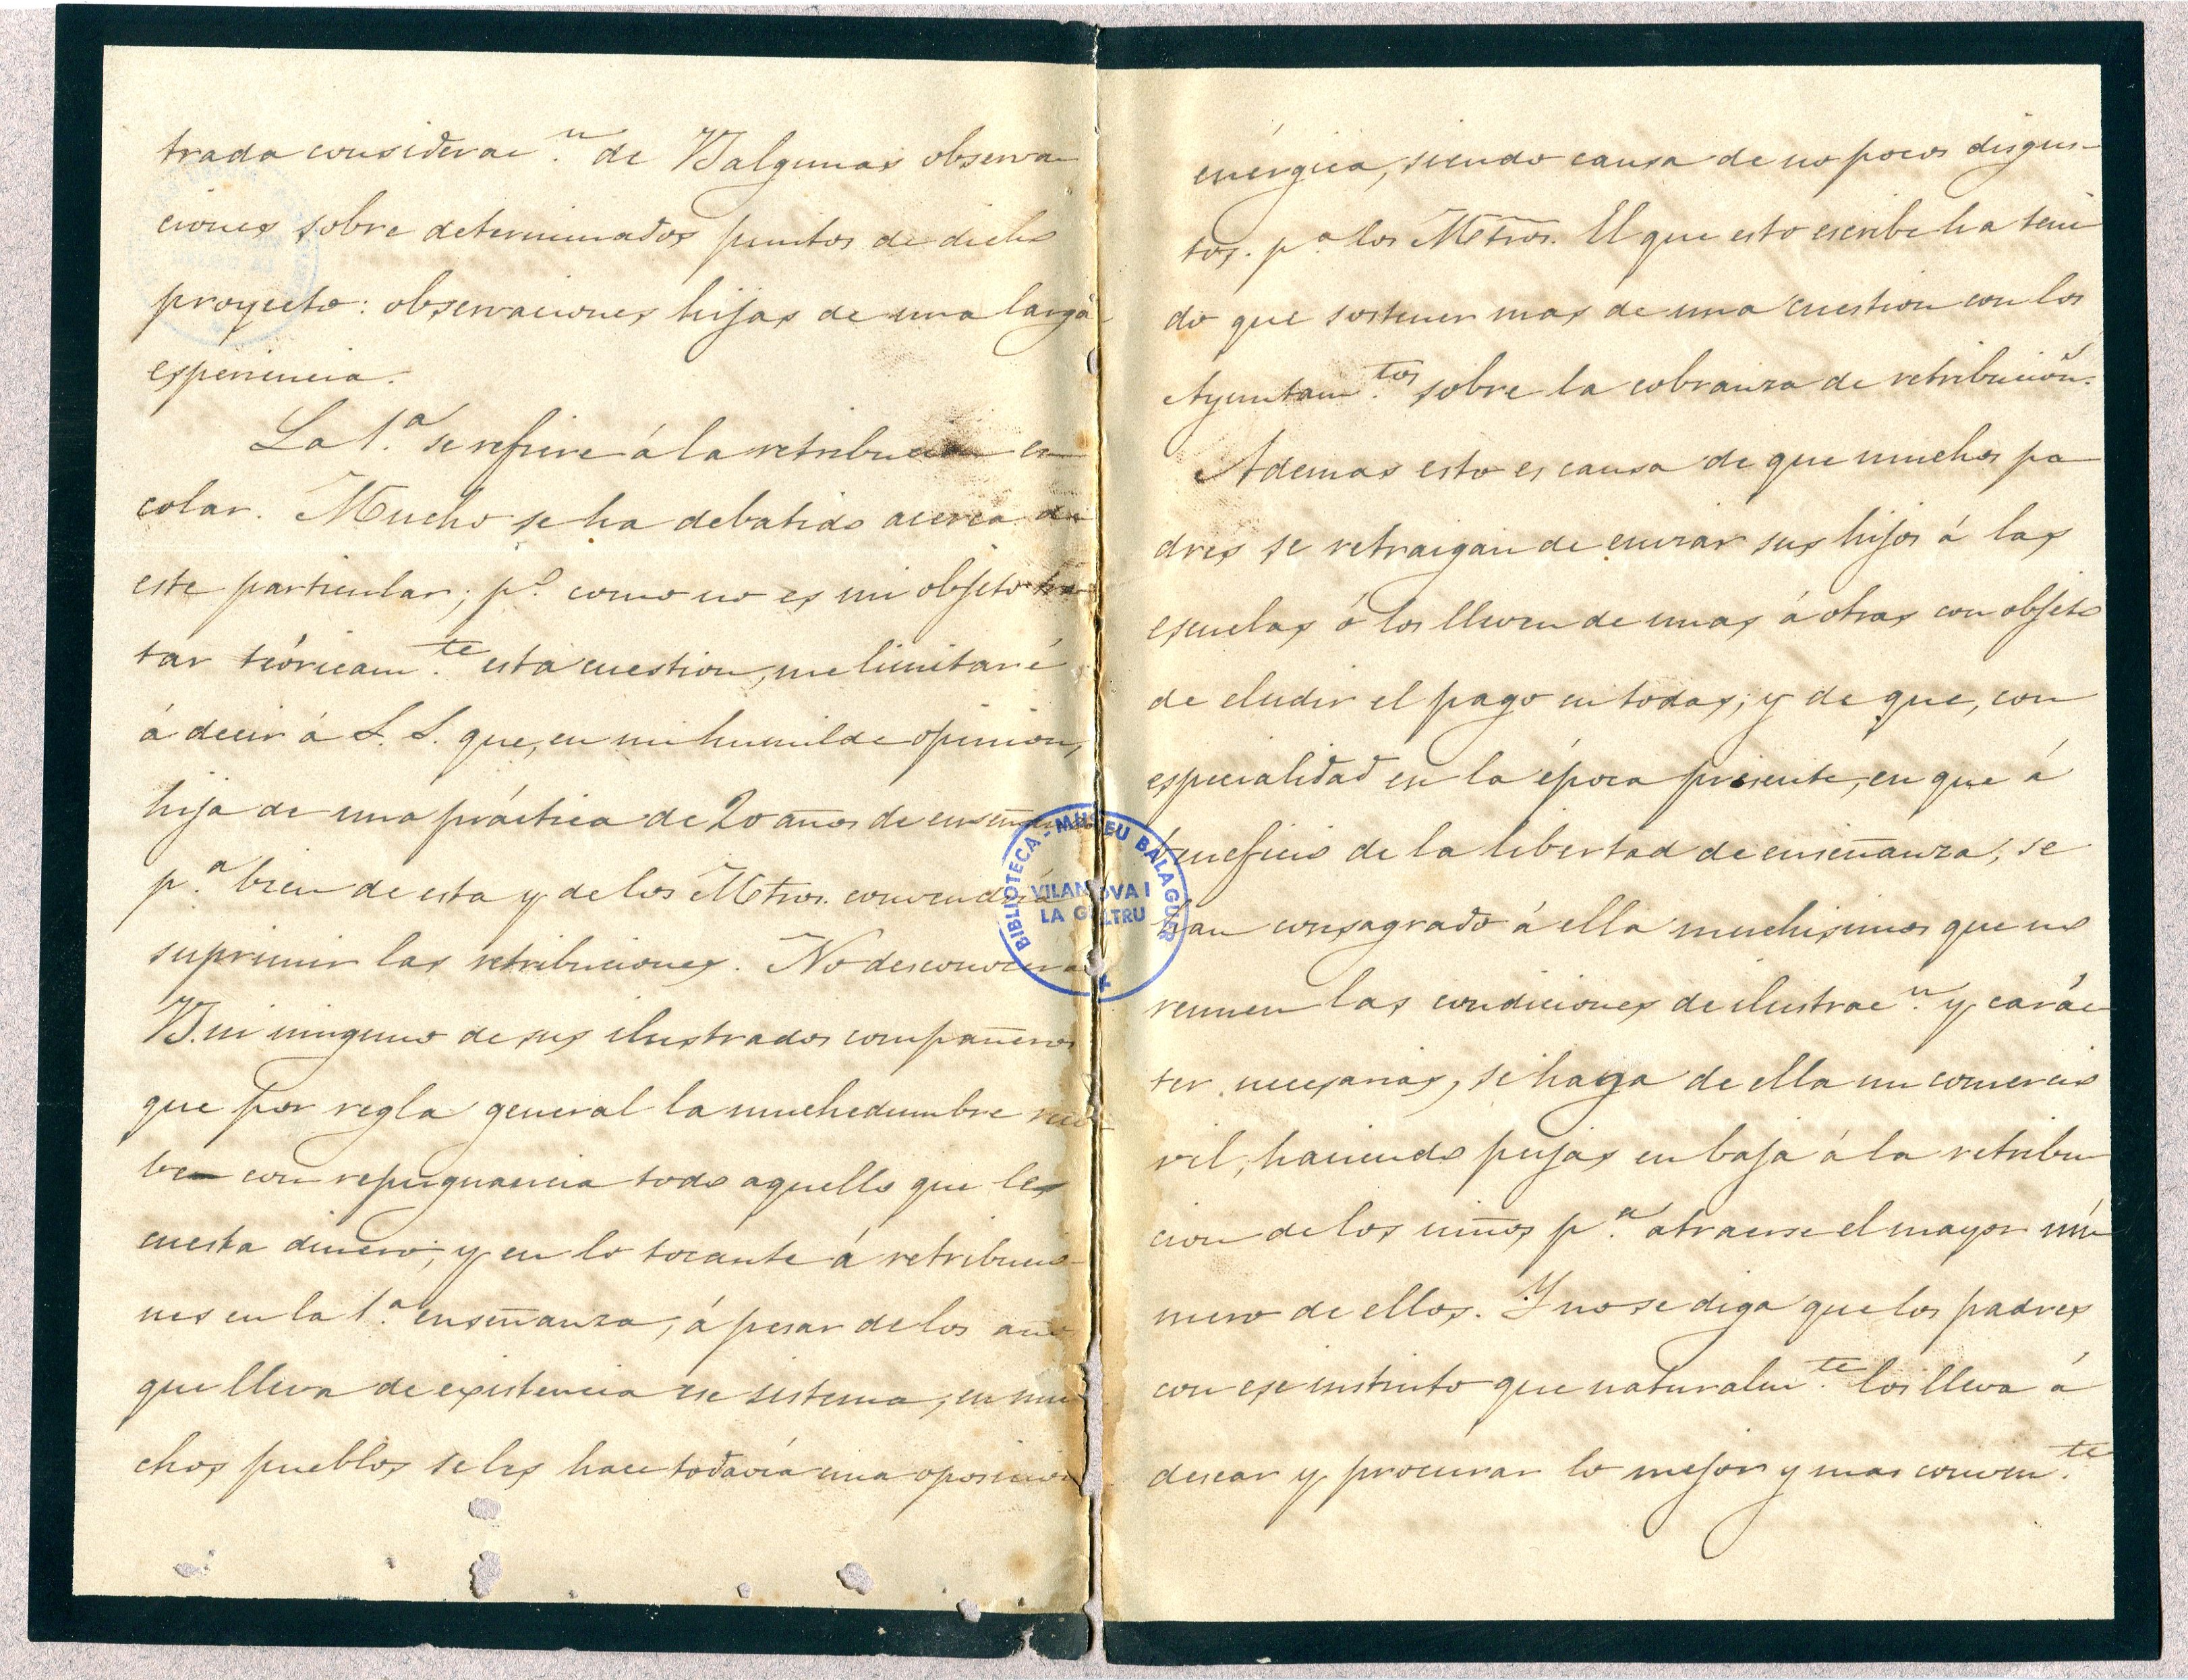 trada considerac.n de V. algunas observa
ciones sobre determinados puntos de dicho
proyecto: observaciones hijas de una larga
esperiencia.
La 1.a se refiere á la retribucion es
colar. Mucho se ha debatido acerca de
este particular; p.o como no es mi objeto tra
tar teóricam.te esta cuestion, me limitaré
á decir á S. S. que, en mi humilde opinion,
hija de una práctica de 20 años de enseñanza
p.a bien de esta y de los Mtros. convendria
suprimir las retribuciones. No desconocerá
V. ni ninguno de sus ilustrados compañeros
que por regla general la muchedumbre reci
be con repugnancia todo aquello que les
cuesta dinero; y en lo tocante á retribucio
nes en la 1.a enseñanza, á pesar de los años
que lleva de existencia ese sistema, en mu
chos pueblos se les hace todavía una oposicion
enérgica, siendo causa de no pocos disgus-
tos. p.a los Mtros. El que esto escribe ha teni
do que sostener mas de una cuestion con los
Ayuntam.tos sobre la cobranza de retribución.
Ademas esto es causa de que muchos pa
dres se retraigan de enviar sus hijos á las
escuelas ó los lleven de unas á otras con objeto
de eludir el pago en todas; y de que, con
especialidad en la época presente, en que á
beneficio de la libertad de enseñanza, se
han consagrado á ella muchisimos que no
reunen las condiciones de ilustrac.n y carác
ter necesarias, se haga de ella un comercio
vil, haciendo pujas en baja á la retribu
cion de los niños p.a atraerse el mayor nú
mero de ellos. Y no se diga que los padres
con ese instinto que naturalm.te los lleva á
desear y procurar lo mejor y mas conven.te
BIBLIOTECA-MUSEU BALAGUER
VILANOVA I
LA GELTRU